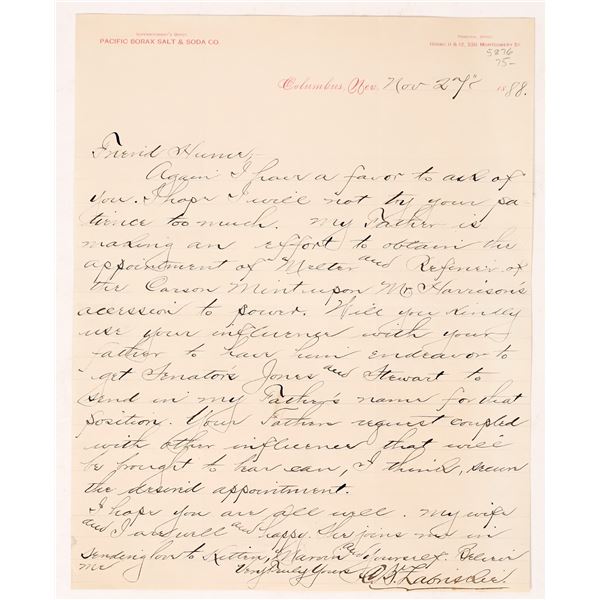 SUPERINTENDENT'S OFFICE
PACIFIC BORAX SALT & SODA CO.
PRINCIPAL OFFICE
ROOMS 11 & 12, 330 MONTGOMERY ST
5876
75-
Columbus, Nev. Nov 27th 1888.
Friend Hume,-
Again I have a favor to ask of
you. I hope I will not try your pa-
tience too much. My Father is
making an effort to obtain the
appointment of "Melter and Refiner of
the Carson Mint upon Mr Harrison's
acession to power. Will you kindly
use your influence with your
father to have him endeavor to
get Senator's Jones and Stewart to
send in my Father's name for that
position. Your Fathers request coupled
with other influence that will
be brought to bear can, I think, secure
the desired appointment.
I hope you are all well. My wife
and I are well and happy. She joins me in
sending love to Kitten, and yourself. Believe
me Very Truly Yours